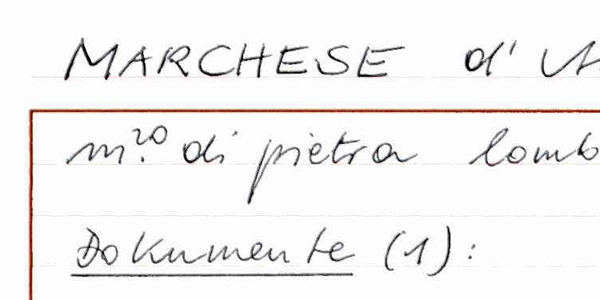 MARCHESE d'
m.ro di pietra lomb
Dokumente (1):